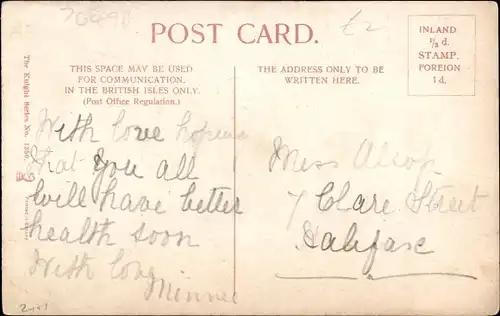 70490
£2
POST CARD.
THIS SPACE MAY BE USED
FOR COMMUNICATION.
IN THE BRITISH ISLES ONLY.
(Post Office Regulation.)
THE ADDRESS ONLY TO BE
WRITTEN HERE.
INLAND
½ d.
STAMP.
FOREIGN
1d.
The Knight Series No.
With love hopeing
that you all
will have better
health soon
With love
Minnie
Miss Alsop
7 Clare Street
Halifax